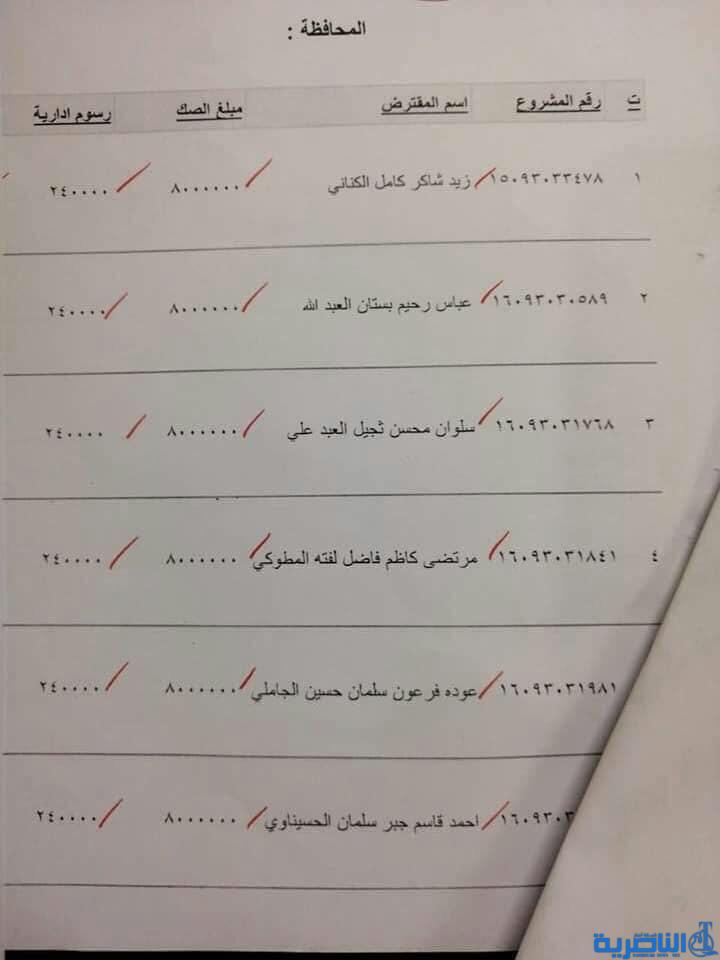 المحافظة :
ت رقم المشروع اسم المقترض مبلغ الصك رسوم ادارية
١ ١٥٠٩٣٠٣٣٤٧٨ زيد شاكر كامل الكناني ٨٠٠٠٠٠٠ ٢٤٠٠٠٠
٢ ١٦٠٩٣٠٣٠٥٨٩ عباس رحيم بستان العبد الله ٨٠٠٠٠٠٠ ٢٤٠٠٠٠
٣ ١٦٠٩٣٠٣١٧٦٨ سلوان محسن ثجيل العبد علي ٨٠٠٠٠٠٠ ٢٤٠٠٠٠
٤ ١٦٠٩٣٠٣١٨٤١ مرتضى كاظم فاضل لفته المطوكي ٨٠٠٠٠٠٠ ٢٤٠٠٠٠
١٦٠٩٣٠٣١٩٨١ عوده فرعون سلمان حسين الجاملي ٨٠٠٠٠٠٠ ٢٤٠٠٠٠
١٦٠٩٣٠٣ احمد قاسم جبر سلمان الحسيناوي ٨٠٠٠٠٠٠ ٢٤٠٠٠٠
الناصرية